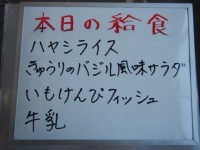 本日の給食
ハヤシライス
きゅうりのバジル風味サラダ
いもけんぴフィッシュ
牛乳